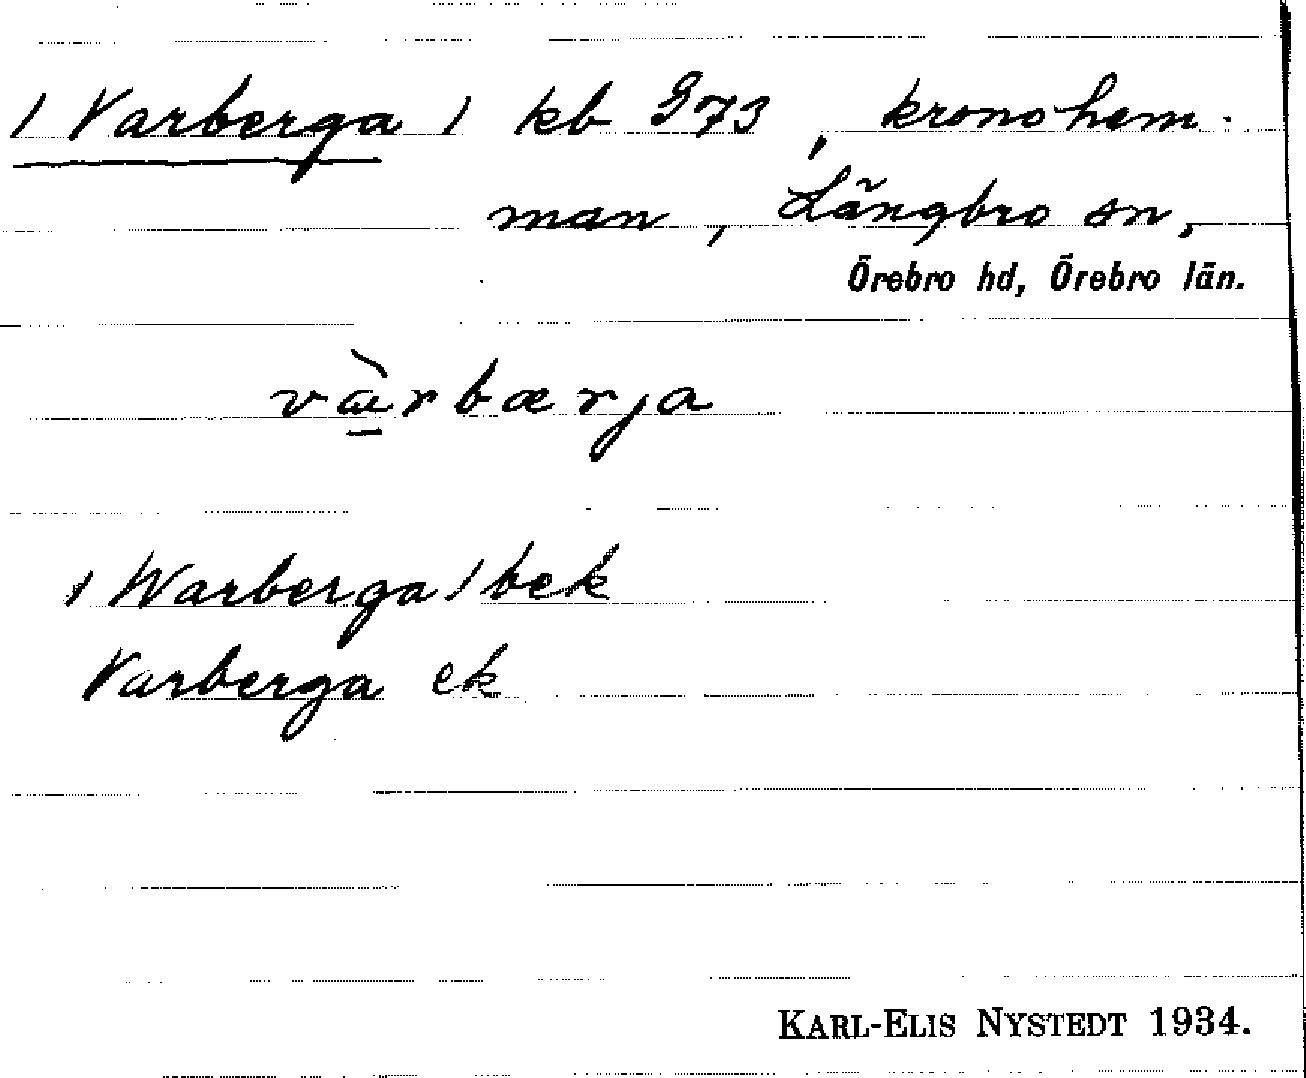 / Varberga / kb G73, kronohem-
man, Längbro sn,
Örebro hd, Örebro län.
væ̀rbærja
/ Warberga / bek
Varberga ek
KARL-ELIS NYSTEDT 1934.